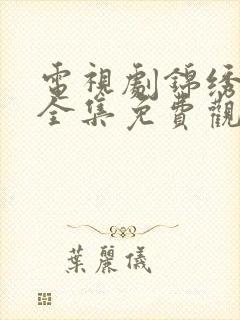 電視劇錦绣
全集免費觀
葉麗儀